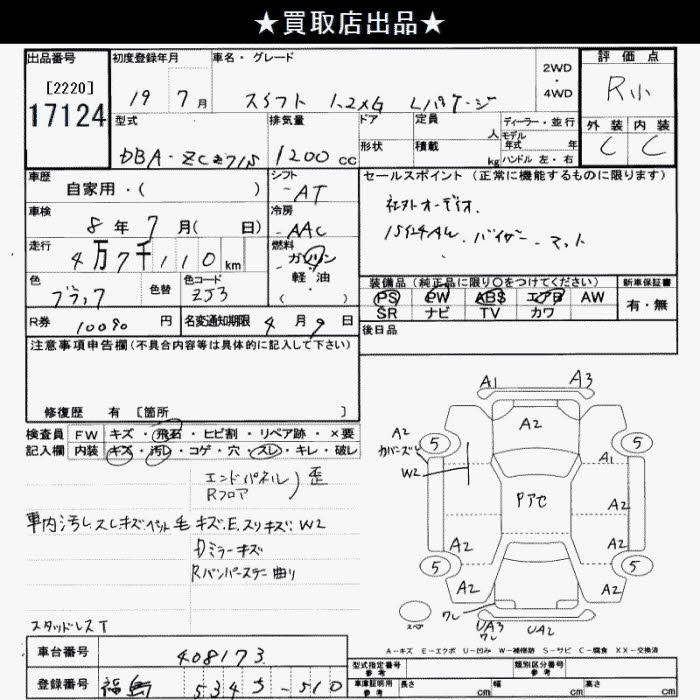 ★買取店出品★
出品番号
[2220]
17124
初度登録年月
19 7月
車名・グレード
スイフト 1.2XG Lパケージ
2WD
・
4WD
評価点
R小
外装 内装
C C
型式
DBA-ZC71S
排気量
1200cc
ドア
形状
定員
人
積載
kg
ディーラー・並行
モデル年式 年
ハンドル 左・右
車歴
自家用・( )
シフト
AT
セールスポイント(正常に機能するものに限ります)
社外オーディオ.
15インチAW バイザー マット
車検
8年 7月( 日)
冷房
AAC
走行
4万7千110km
燃料
ガソリン
軽・油
( )
色
ブラック
色替
色コード
ZJ3
装備品(純正品に限り○をつけてください)
PS PW ABS エアB AW
SR ナビ TV カワ
新車保証書
有・無
R券
円
名変通知期限 4月9日
後日品
注意事項申告欄(不具合内容等は具体的に記入して下さい)
修復歴 有 [箇所 ]
検査員記入欄
FW キズ・飛石・ヒビ割・リペア跡・×要
内装 キズ・汚レ・コゲ・穴・スレ・キレ・破レ
エンドパネル
Rフロア
歪
車内汚レスレキズペット毛 キズ.E.スリキズ.W2
Dミラーキズ
Rバンパーステー曲り
スタッドレスT
A1 A3
A2
A2
カバーズレ
W2
5 5
A1
Pアセ
A2
A2 A2
5 5
A2 A2
ワレ
スペア
UA3
ワレ
UA2
A-キズ E-エクボ U-凹み W-補修跡 S-サビ C-腐食 XX-交換済
車台番号
408173
登録番号
福島 534 5-510
型式指定番号
参考
類別区分番号
参考
車庫証明用
参考
長さ cm
幅 cm
高さ cm